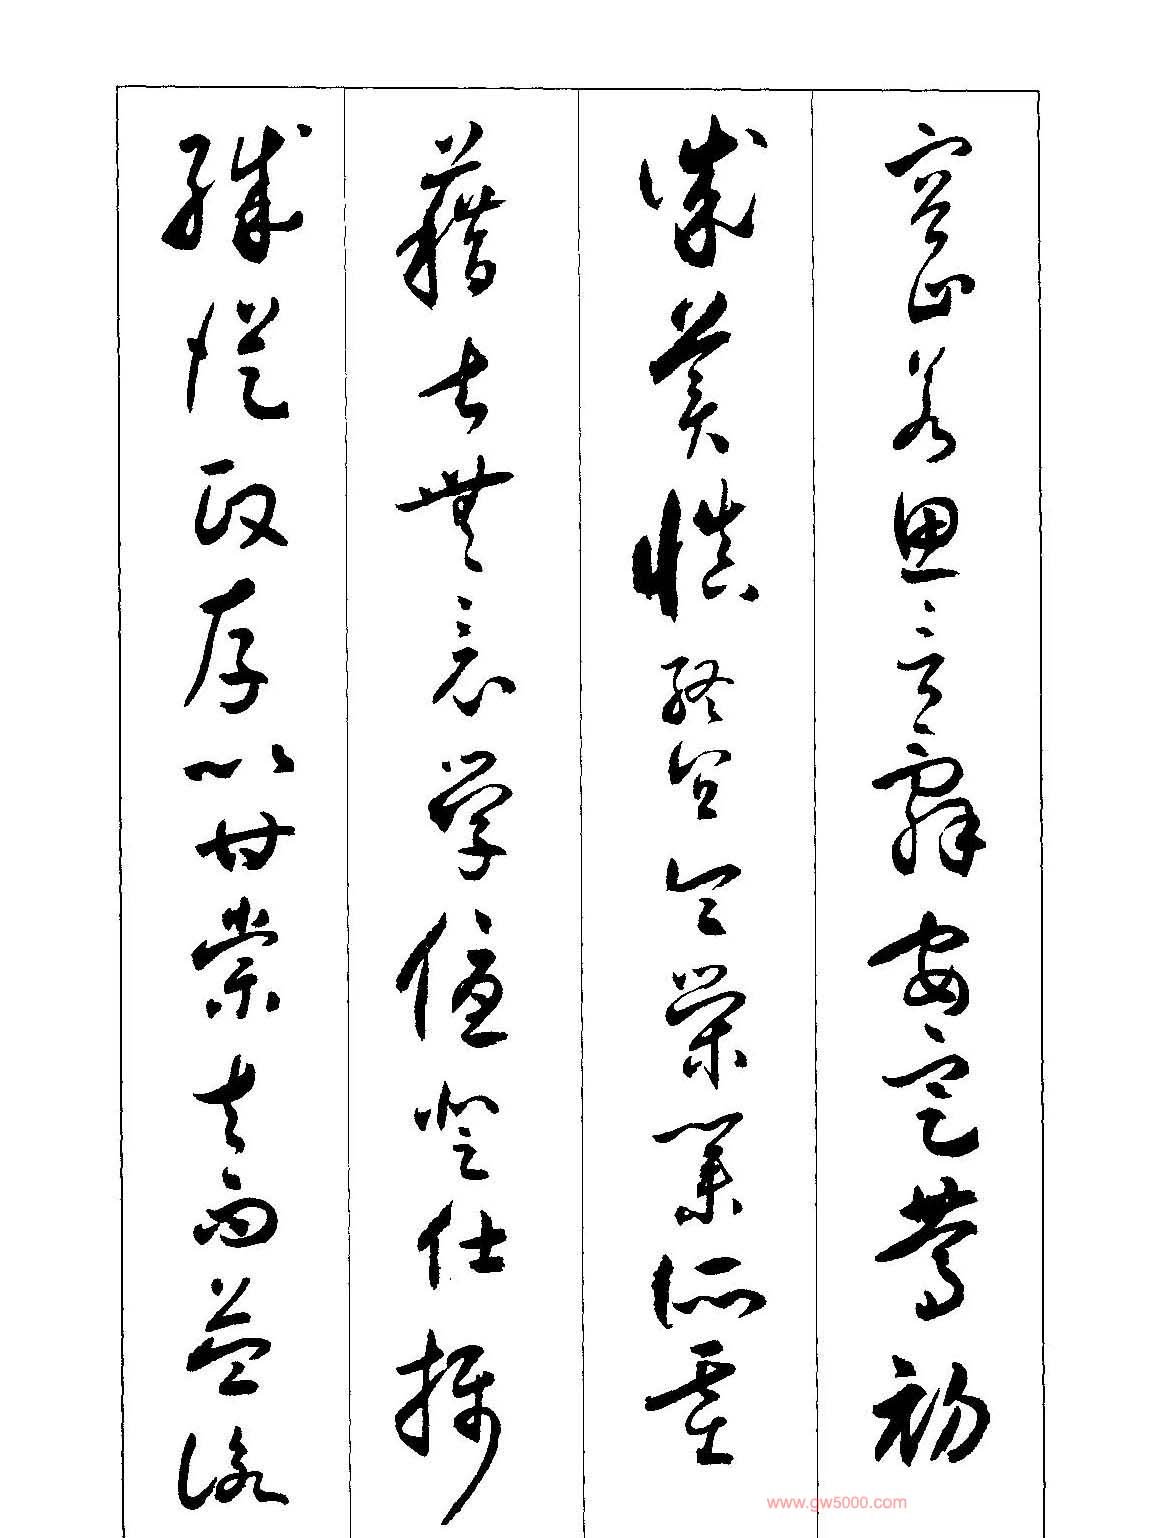 容止若思言辭安定篤初
誠美慎終宜令榮業所基
藉甚無竟學優登仕攝
職從政存以甘棠去而益詠
www.gw5000.com